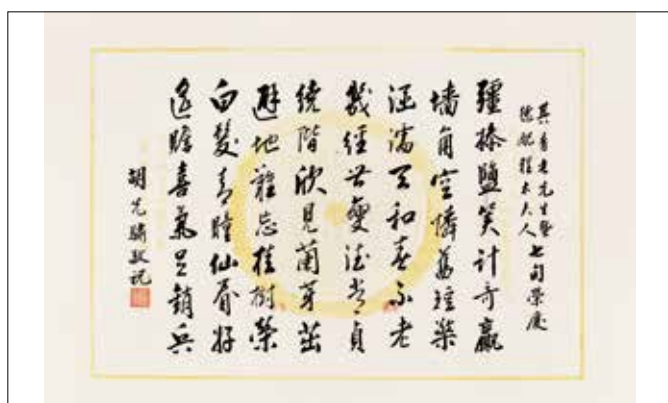 老先生暨
德配程太夫人七旬榮慶
鹽筴計奇贏
墻角空憐舊短檠
涵濡天和春不老
幾經世變德常貞
繞階欣見蘭芽茁
避地難忘桂樹榮
白髮青瞳仙眷好
遙瞻喜氣足銷兵
胡先驌敬祝